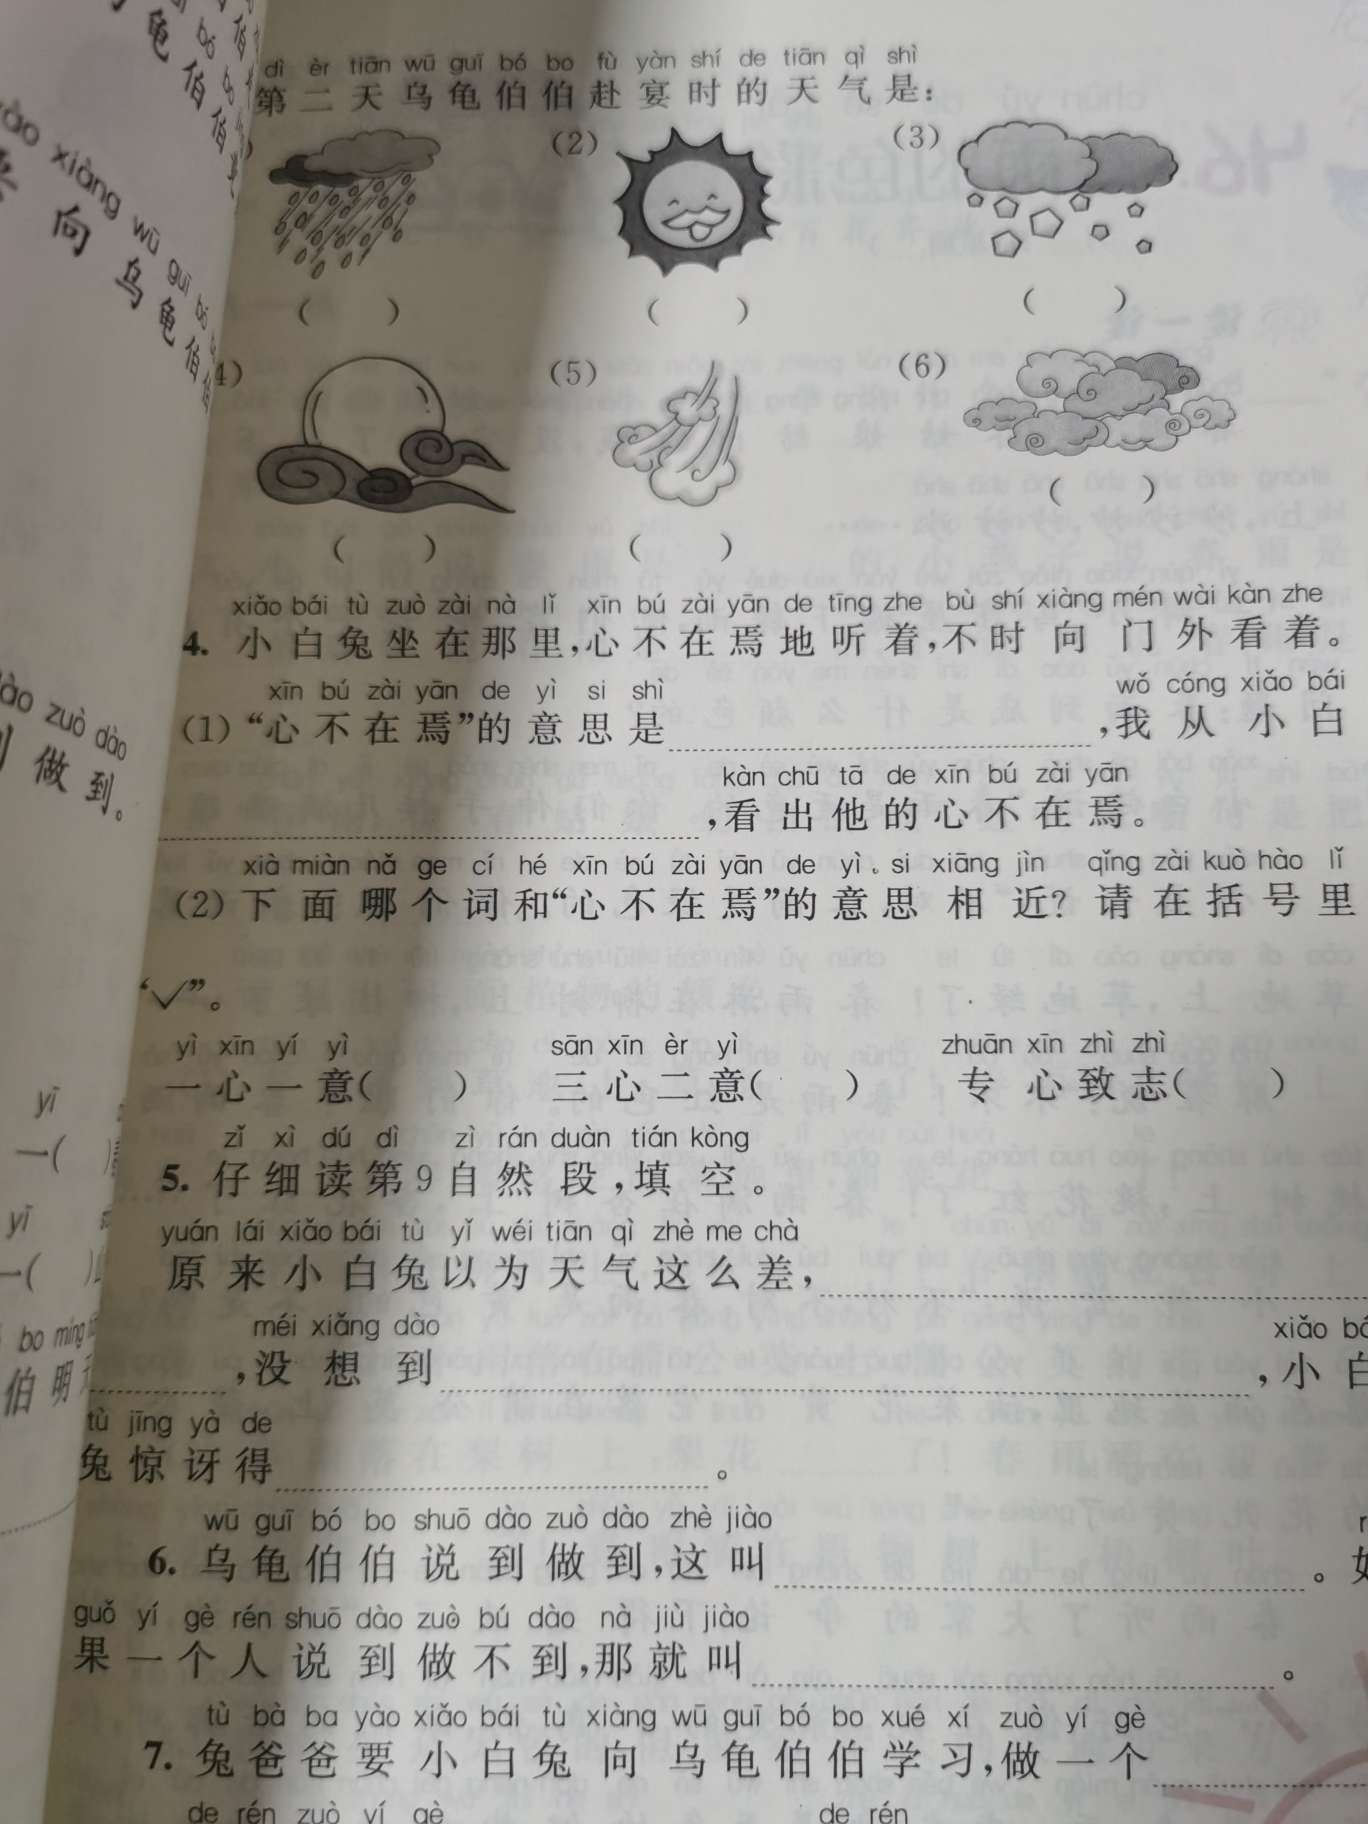 dì èr tiān wū guī bó bo fù yàn shí de tiān qì shì
第二天乌龟伯伯赴宴时的天气是：
(2)
(3)
(　　)
(　　)
(　　)
4)
(5)
(6)
(　　)
(　　)
(　　)
xiǎo bái tù zuò zài nà lǐ xīn bú zài yān de tīng zhe bù shí xiàng mén wài kàn zhe
4. 小白兔坐在那里，心不在焉地听着，不时向门外看着。
xīn bú zài yān de yì si shì wǒ cóng xiǎo bái
(1)“心不在焉”的意思是，我从小白
kàn chū tā de xīn bú zài yān
，看出他的心不在焉。
xià miàn nǎ ge cí hé xīn bú zài yān de yì si xiāng jìn qǐng zài kuò hào lǐ
(2)下面哪个词和“心不在焉”的意思相近？请在括号里
“✓”。
yì xīn yí yì sān xīn èr yì zhuān xīn zhì zhì
一心一意(　　) 三心二意(　　) 专心致志(　　)
zǐ xì dú dì zì rán duàn tián kòng
5. 仔细读第9自然段，填空。
yuán lái xiǎo bái tù yǐ wéi tiān qì zhè me chà
原来小白兔以为天气这么差，
méi xiǎng dào xiǎo
，没想到，小白
tù jīng yà de
兔惊讶得。
wū guī bó bo shuō dào zuò dào zhè jiào
6. 乌龟伯伯说到做到，这叫。如
guǒ yí gè rén shuō dào zuò bú dào nà jiù jiào
果一个人说到做不到，那就叫。
tù bà ba yào xiǎo bái tù xiàng wū guī bó bo xué xí zuò yí gè
7. 兔爸爸要小白兔向乌龟伯伯学习，做一个
de rén zuò yí gè de rén
龟伯伯
xiàng wū guī bó
向乌龟伯伯
zuò dào
做到。
yī
一(
yī
一(
bo míng
伯明